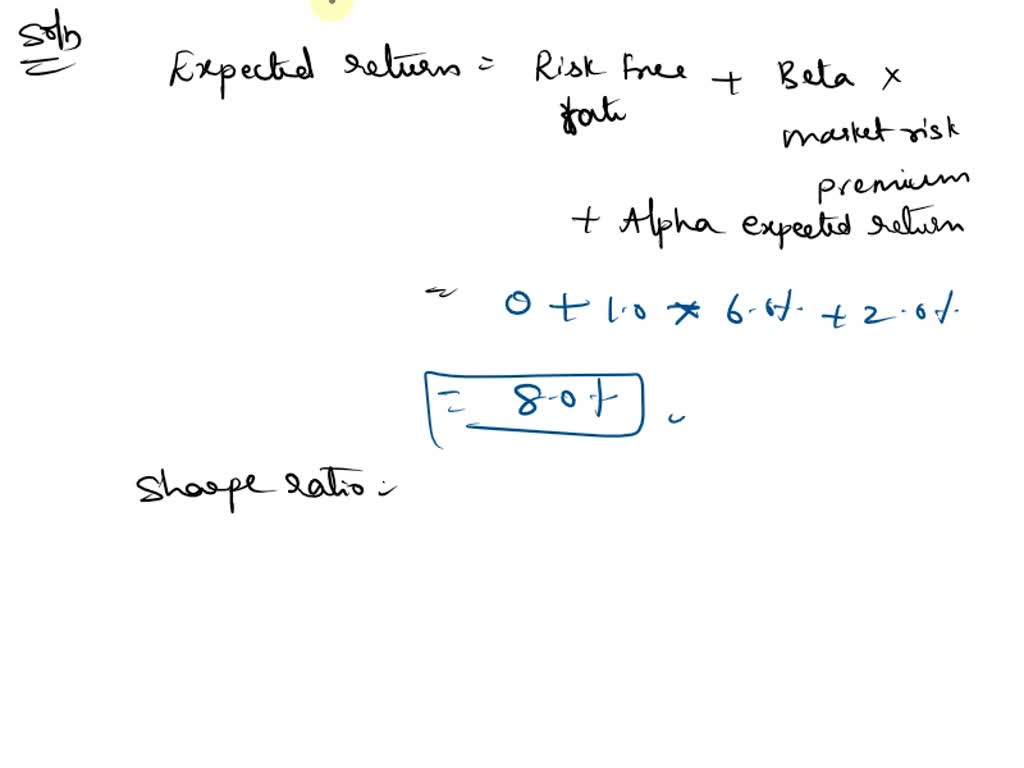 Soln
Expected return = Risk Free + Beta ×
rate
market risk
premium
+ Alpha expected return
= 0 + 1.0 * 6.0% + 2.0%
= 8.0%
Sharpe ratio :